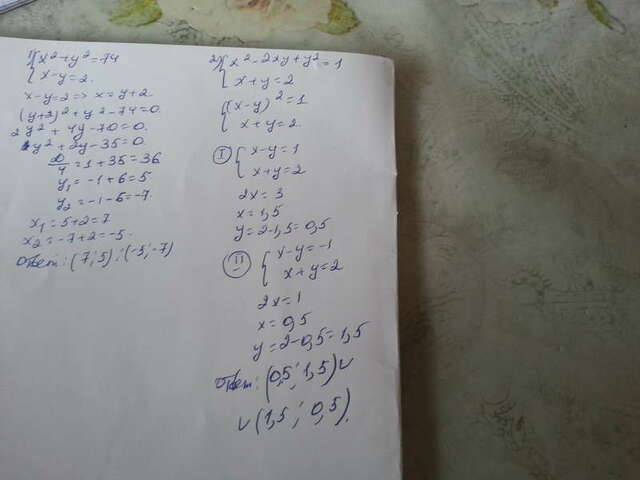 1) { x² + y² = 74
x - y = 2.
x - y = 2 => x = y + 2
(y+2)² + y² - 74 = 0.
2y² + 4y - 70 = 0.
y² + 2y - 35 = 0.
D/4 = 1 + 35 = 36
y₁ = -1 + 6 = 5
y₂ = -1 - 6 = -7.
x₁ = 5 + 2 = 7
x₂ = -7 + 2 = -5.
Ответ: (7; 5); (-5; -7)
2) { x² - 2xy + y² = 1
x + y = 2
{ (x-y)² = 1
x + y = 2.
I { x - y = 1
x + y = 2
2x = 3
x = 1,5
y = 2 - 1,5 = 0,5
II { x - y = -1
x + y = 2
2x = 1
x = 0,5
y = 2 - 0,5 = 1,5
Ответ: (0,5; 1,5) ∪
∪ (1,5; 0,5).